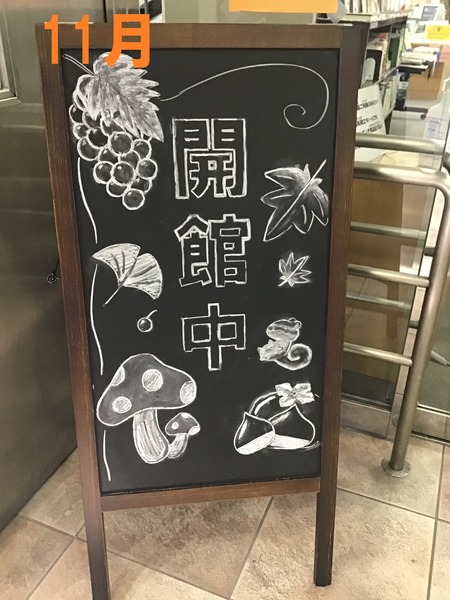 11月
開館中